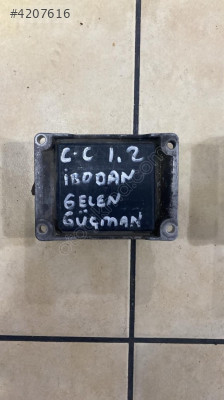 #4207616
C-C 1.2
İBODAN
GELEN
GÜÇMAN